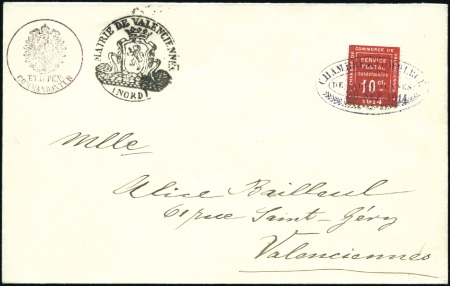 ETAPPEN
COMMANDANTUR
MAIRIE DE VALENCIENNES
(NORD)
CHAMBRE DE COMMERCE
SERVICE
POSTAL
10 c.
1914
Mlle
Alice Bailleul
61 rue Saint-Géry
Valenciennes